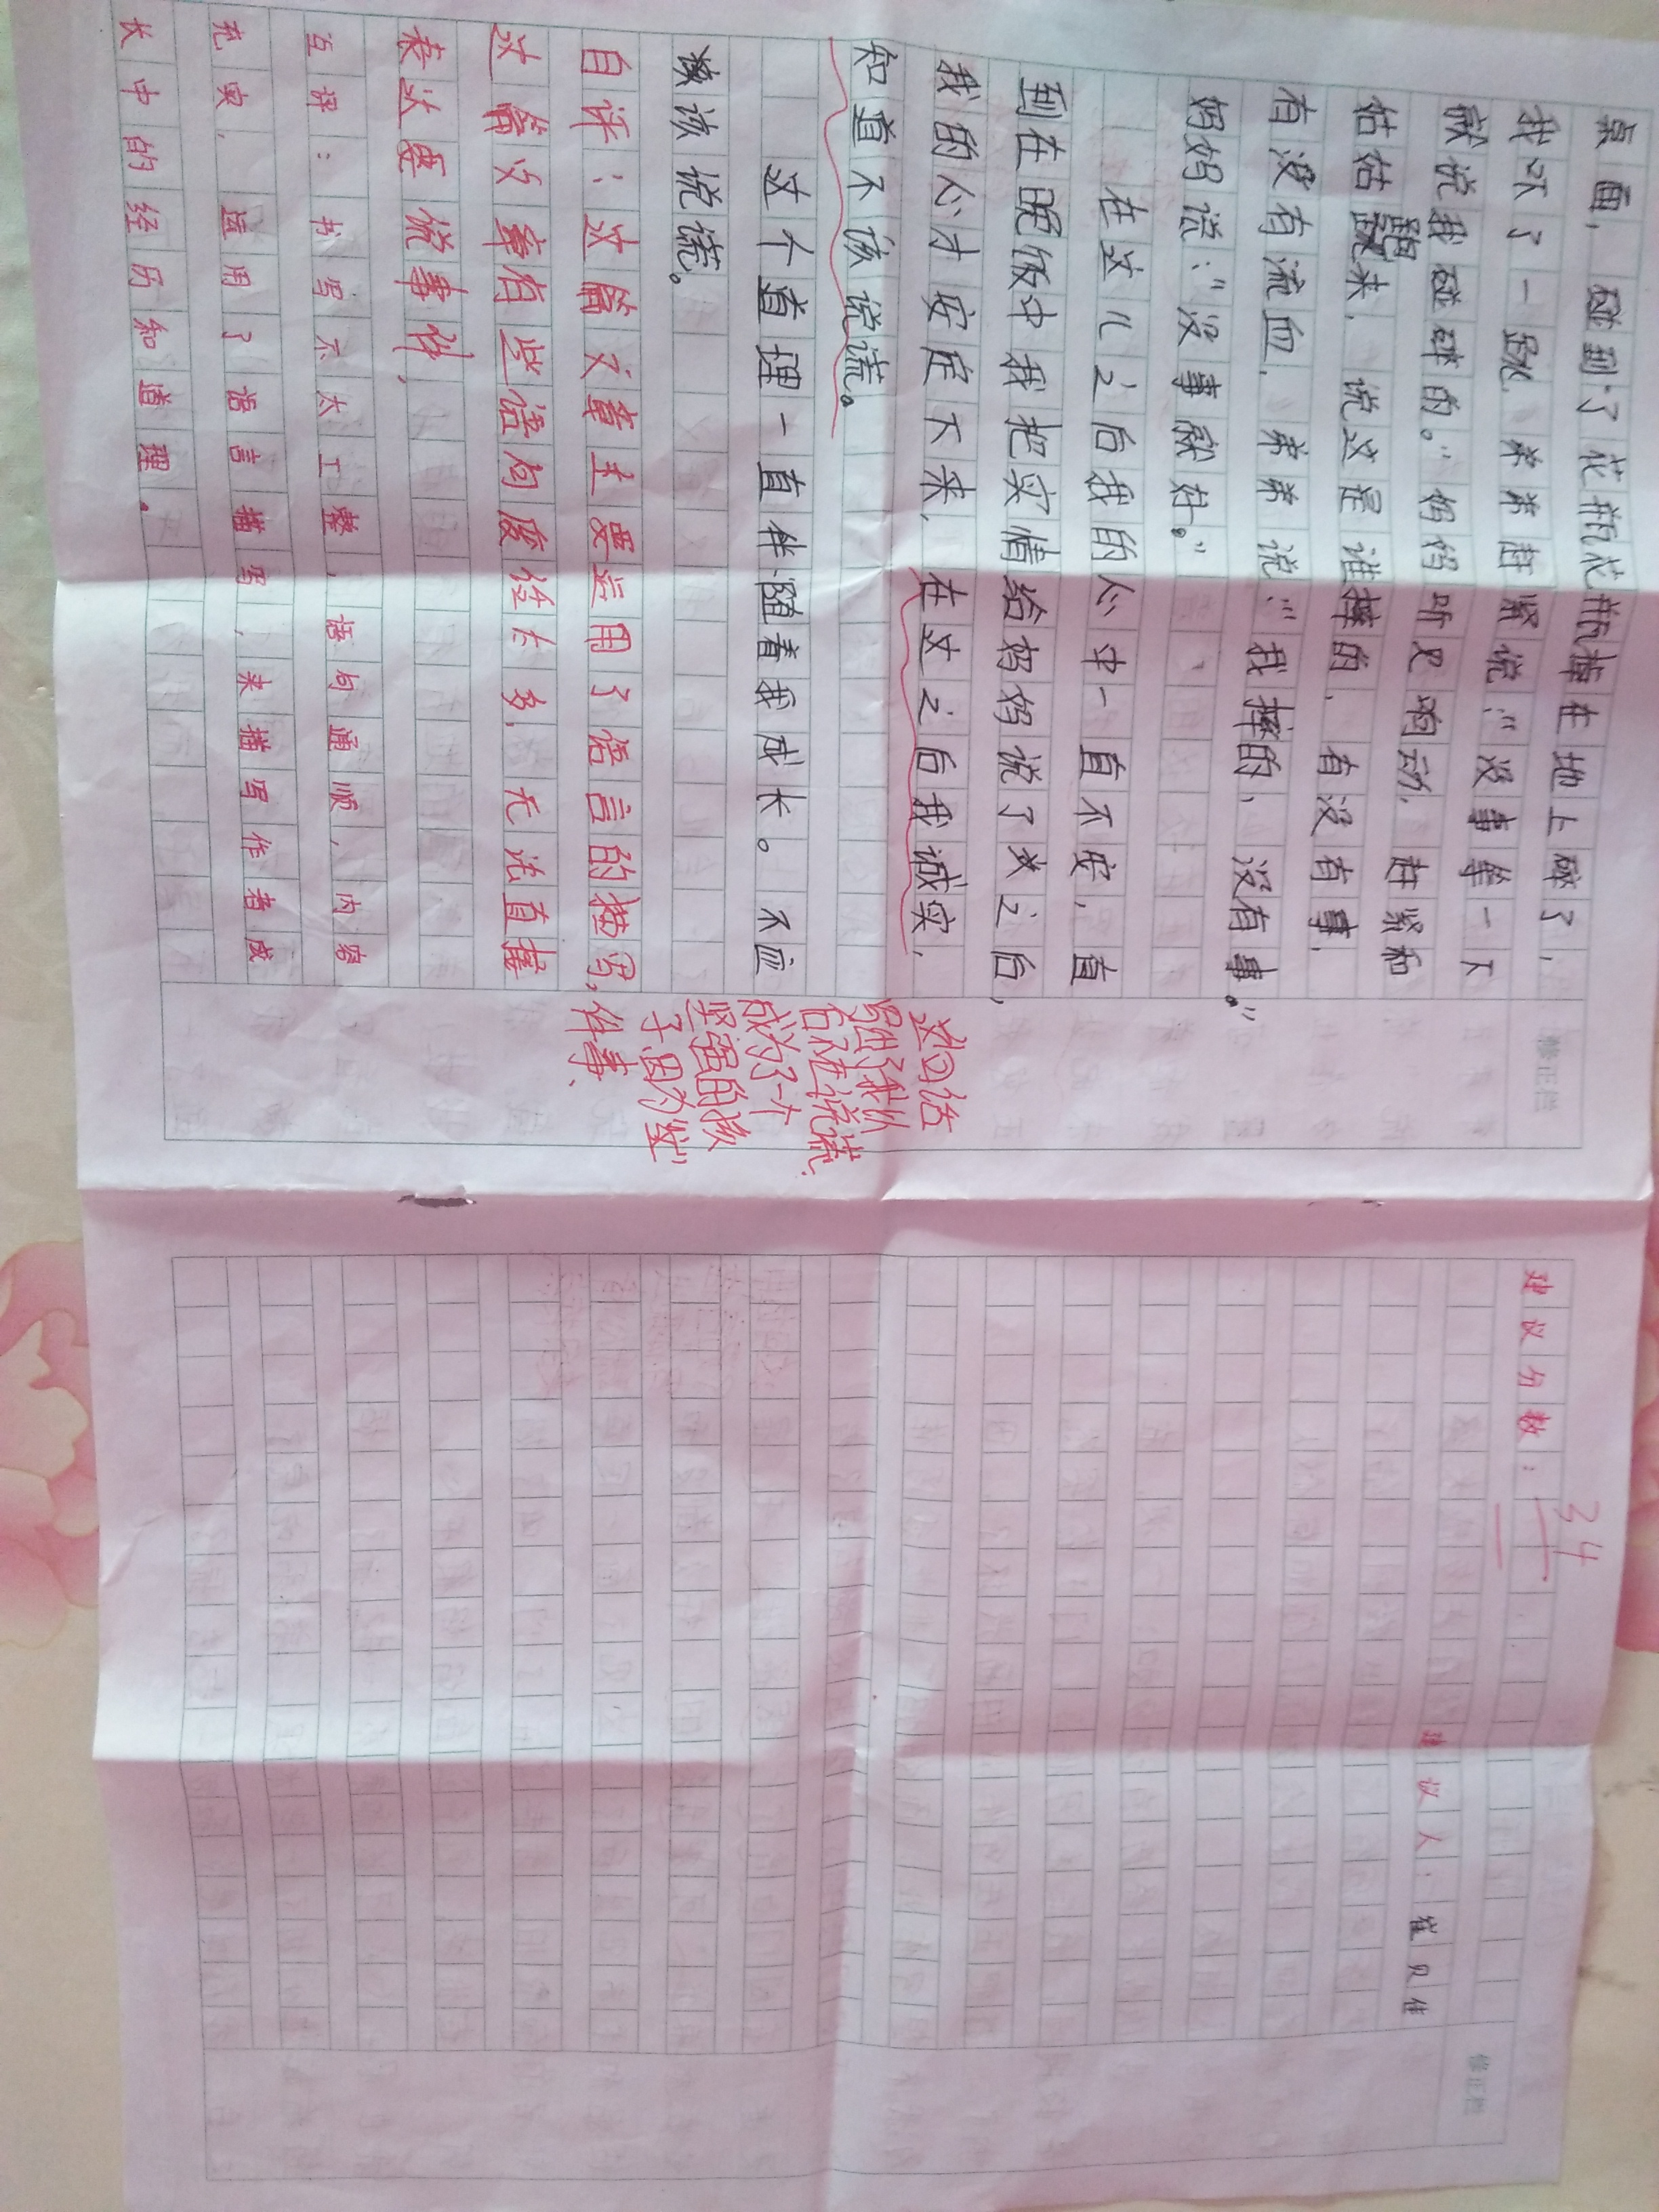 桌面，碰到了花瓶花瓶掉在地上碎了，
我吓了一跳，弟弟赶紧说：“没事等一下
就说我碰碎的。”妈妈听见响动，赶紧和
姑姑跑来，说这是谁摔的，有没有事，
有没有流血，弟弟说：“我摔的，没有事。”
妈妈说：“没事就好。”
在这儿之后我的心中一直不安，直
到在晚饭中我把实情给妈妈说了次之后，
我的心才安定下来，在这之后我诚实，
知道不该说谎。
这个道理一直伴随着我成长。不应
该说谎。
自评：这篇文章主要运用了语言的描写，
这篇文章有些语句废话太多，无法直接
表达要说事件，
互评：书写不太工整，语句通顺，内容
充实，运用了语言描写，来描写作者成
长中的经历和道理。
修正栏
这句话
写出了我从
后不在说谎，
成为了一个
坚强的孩
子因为这
件事、
建议分数：
34
建议人：崔贝佳
修正栏